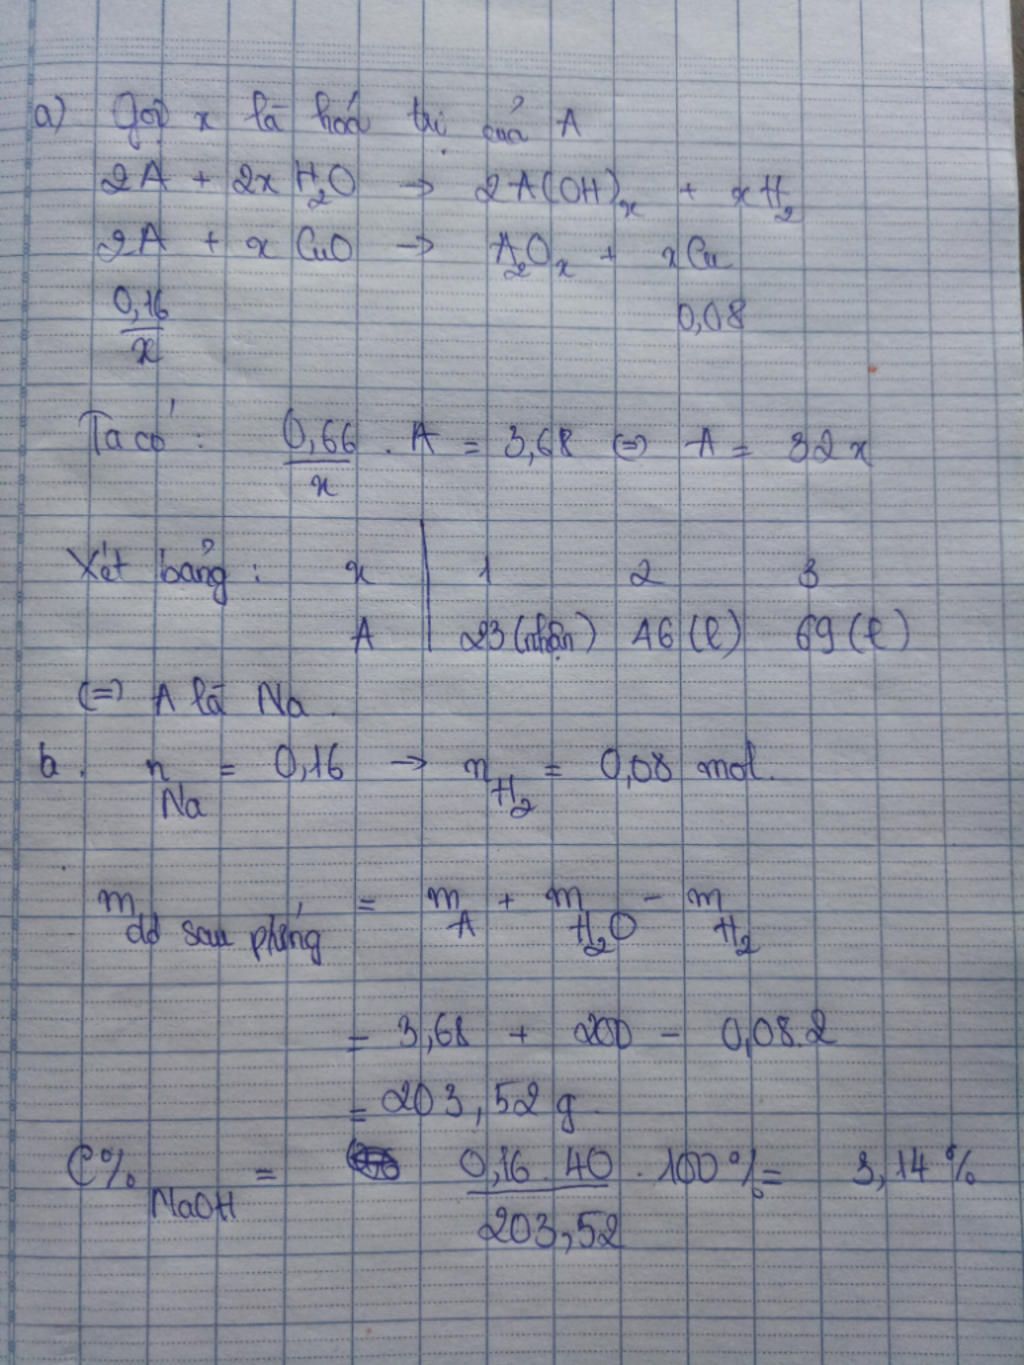 a) Gọi x là hoá trị của A
2A + 2x H₂O → 2A(OH)ₓ + xH₂
2A + x CuO → A₂Oₓ + xCu
0,16/x 0,08
Ta có: 0,66/x . A = 3,68 (=) A = 32x
Xét bảng: x | 1 2 3
A | 23 (nhận) 46 (l) 69 (l)
(=) A là Na.
b. n Na = 0,16 → n H₂ = 0,08 mol.
m dd sau pứng = m A + m H₂O - m H₂
= 3,68 + 200 - 0,08.2
= 203,52 g.
C% NaOH = 0,16.40/203,52 . 100% = 3,14%